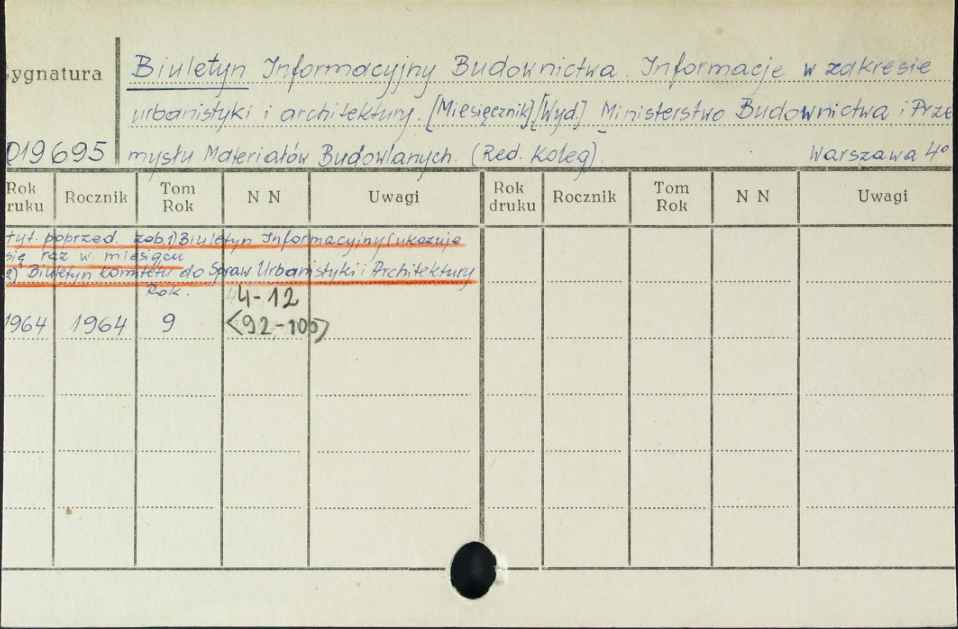 Sygnatura
Biuletyn Informacyjny Budownictwa. Informacje w zakresie
urbanistyki i architektury. [Miesięcznik] [Wyd.] Ministerstwo Budownictwa i Prze
019695 mysłu Materiałów Budowlanych. (Red. Koleg). Warszawa 4°
Rok druku Rocznik Tom Rok N N Uwagi Rok druku Rocznik Tom Rok N N Uwagi
tyt. poprzed. zob. 1) Biuletyn Informacyjny (ukazuje
się raz w miesiącu
2) Biuletyn Komitetu do Spraw Urbanistyki i Architektury
Rok. 4-12
1964 1964 9 <92-100>